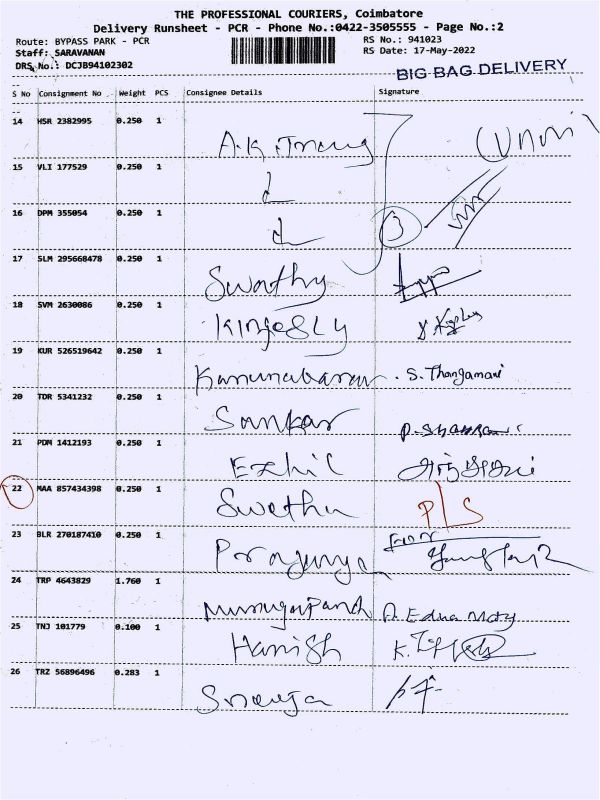 THE PROFESSIONAL COURIERS, Coimbatore
Delivery Runsheet - PCR - Phone No.:0422-3505555 - Page No.:2
Route: BYPASS PARK - PCR
RS No.: 941023
Staff: SARAVANAN
RS Date: 17-May-2022
DRS No.: DCJB94102302
BIG BAG DELIVERY
S No Consignment No Weight PCS Consignee Details Signature
14 HSR 2382995 0.250 1
15 VLI 177529 0.250 1
16 DPM 355054 0.250 1 3
17 SLM 295668478 0.250 1 Swathy
18 SVM 2630086 0.250 1 Kingesly
19 KUR 526519642 0.250 1 Karunakaran S. Thangamani
20 TDR 5341232 0.250 1 Sankar
21 PDM 1412193 0.250 1 Ezhil
22 MAA 857434398 0.250 1 Swetha P/S
23 BLR 270187410 0.250 1
24 TRP 4643829 1.760 1 A. Edna Mary
25 TNJ 101779 0.100 1 Harish
26 TRZ 56896496 0.283 1